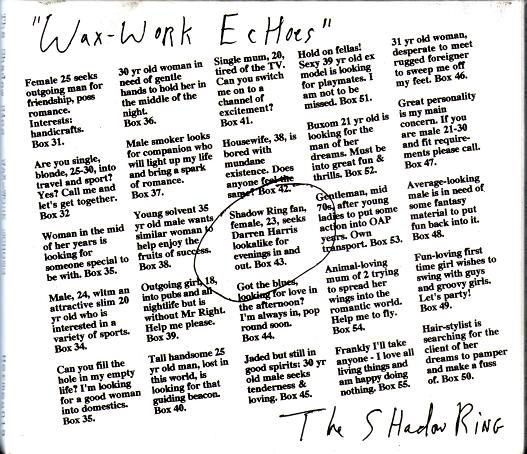 "Wax-Work Echoes"
Female 25 seeks
outgoing man for
friendship, poss
romance.
Interests:
handicrafts.
Box 31.
Are you single,
blonde, 25-30, into
travel and sport?
Yes? Call me and
let's get together.
Box 32
Woman in the mid
of her years is
looking for
someone special to
be with. Box 35.
Male, 24, witm an
attractive slim 20
yr old who is
interested in a
variety of sports.
Box 34.
Can you fill the
hole in my empty
life? I'm looking
for a good woman
into domestics.
Box 35.
30 yr old woman in
need of gentle
hands to hold her in
the middle of the
night.
Box 36.
Male smoker looks
for companion who
will light up my life
and bring a spark
of romance.
Box 37.
Young solvent 35
yr old male wants
similar woman to
help enjoy the
fruits of success.
Box 38.
Outgoing girl, 18,
into pubs and all
nightlife but is
without Mr Right.
Help me please.
Box 39.
Tall handsome 25
yr old man, lost in
this world, is
looking for that
guiding beacon.
Box 40.
Single mum, 20,
tired of the TV.
Can you switch
me on to a
channel of
excitement?
Box 41.
Housewife, 38, is
bored with
mundane
existence. Does
anyone feel the
same? Box 42.
Shadow Ring fan,
female, 23, seeks
Darren Harris
lookalike for
evenings in and
out. Box 43.
Got the blues,
looking for love in
the afternoon?
I'm always in, pop
round soon.
Box 44.
Jaded but still in
good spirits: 30 yr
old male seeks
tenderness &
loving. Box 45.
Hold on fellas!
Sexy 39 yr old ex
model is looking
for playmates. I
am not to be
missed. Box 51.
Buxom 21 yr old is
looking for the
man of her
dreams. Must be
into great fun &
thrills. Box 52.
Gentleman, mid
70s, after young
ladies to put some
action into OAP
years. Own
transport. Box 53.
Animal-loving
mum of 2 trying
to spread her
wings into the
romantic world.
Help me to fly.
Box 54.
Frankly I'll take
anyone - I love all
living things and
am happy doing
nothing. Box 55.
31 yr old woman,
desperate to meet
rugged foreigner
to sweep me off
my feet. Box 46.
Great personality
is my main
concern. If you
are male 21-30
and fit require-
ments please call.
Box 47.
Average-looking
male is in need of
some fantasy
material to put
fun back into it.
Box 48.
Fun-loving first
time girl wishes to
swing with guys
and groovy girls.
Let's party!
Box 49.
Hair-stylist is
searching for the
client of her
dreams to pamper
and make a fuss
of. Box 50.
The Shadow Ring